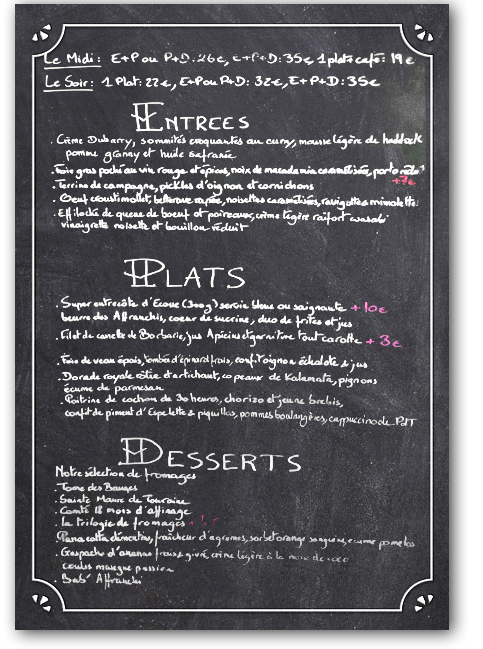 Le Midi: E+P ou P+D: 26€, E+P+D: 35€, 1 plat café: 19€
Le Soir: 1 Plat: 22€, E+P ou P+D: 32€, E+P+D: 35€
ENTREES
. Crème Dubarry, sommités croquantes au curry, mousse légère de haddock
pomme granny et huile safranée
. Foie gras poché au vin rouge et épices, noix de macadamia caramélisées, porto
+7€
. Terrine de campagne, pickles d'oignon et cornichons
. Oeuf croustimollet, betterave rapée, noisettes caramélisées, ravigotte
. Effilochée de queue de boeuf et poireaux, crème légère raifort wasabi
vinaigrette noisette et bouillon réduit
PLATS
. Super entrecôte d'Ecosse (300g) servie bleue ou saignante +10€
beurre des Affranchis, coeur de sucrine, duo de frites et jus
. Filet de canette de Barbarie, jus Apicius et garniture tout carotte +3€
. Foie de veau épais, tombée d'épinard frais, confit oignon échalote & jus
. Dorade royale rôtie et artichaut, copeaux de Kalamata, pignons
écume de parmesan
. Poitrine de cochon de 30 heures, chorizo et jeune brebis,
confit de piment d'Espelette & piquillos, pommes boulangères, cappuccino de PdT
DESSERTS
Notre sélection de fromages
. Tome des Bauges
. Sainte Maure de Touraine
. Comté 18 mois d'affinage
. La trilogie de fromages
. Panacotta clémentine, fraîcheur d'agrumes, sorbet orange sanguine, écume pomelos
. Gaspacho d'ananas frais & givré, crème légère à la noix de coco
coulis mangue passion
. Bab' Affranchi